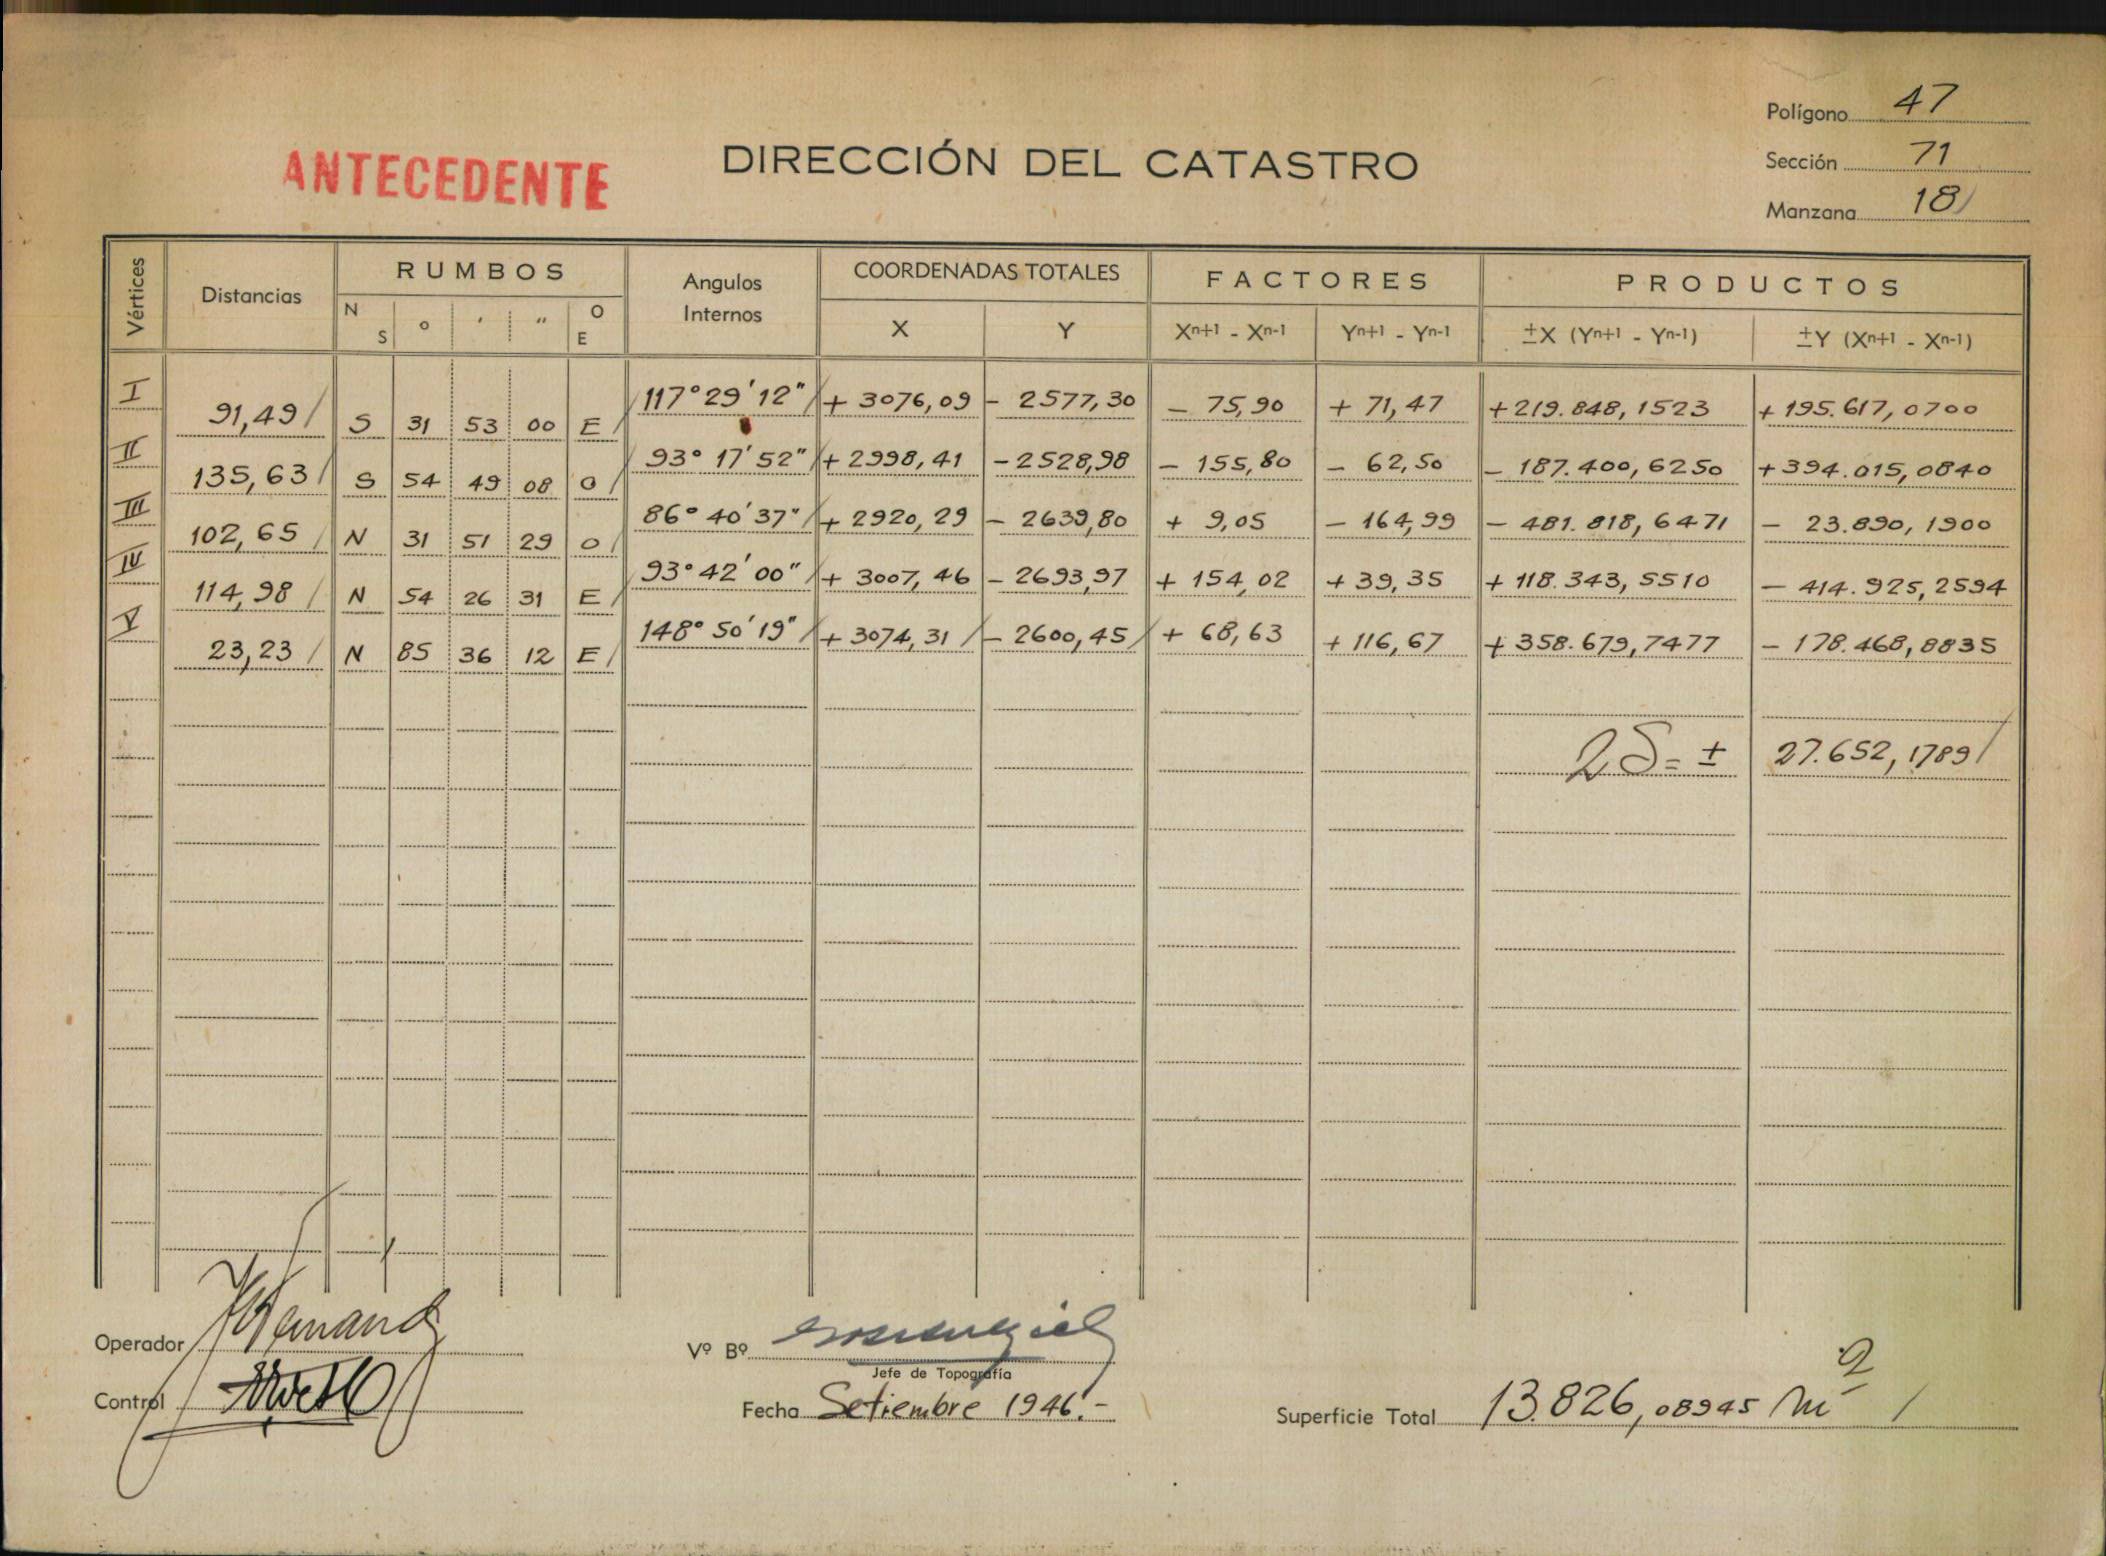 Polígono 47
ANTECEDENTE
DIRECCIÓN DEL CATASTRO
Sección 71
Manzana 18
Vértices Distancias RUMBOS Angulos Internos COORDENADAS TOTALES FACTORES PRODUCTOS
N S ° ' " O E X Y Xn+1 - Xn-1 Yn+1 - Yn-1 ±X (Yn+1 - Yn-1) ±Y (Xn+1 - Xn-1)
I 91,49 S 31 53 00 E 117° 29' 12" + 3076,09 - 2577,30 - 75,90 + 71,47 + 219.848,1523 + 195.617,0700
II 135,63 S 54 49 08 O 93° 17' 52" + 2998,41 - 2528,98 - 155,80 - 62,50 - 187.400,6250 + 394.015,0840
III 102,65 N 31 51 29 O 86° 40' 37" + 2920,29 - 2639,80 + 9,05 - 164,99 - 481.818,6471 - 23.890,1900
IV 114,98 N 54 26 31 E 93° 42' 00" + 3007,46 - 2693,97 + 154,02 + 39,35 + 118.343,5510 - 414.925,2594
V 23,23 N 85 36 12 E 148° 50' 19" + 3074,31 - 2600,45 + 68,63 + 116,67 + 358.679,7477 - 178.468,8835
2S = ± 27.652,1789
Operador
Vº Bº
Jefe de Topografía
Control
Fecha Setiembre 1946.-
Superficie Total 13.826,08945 m2